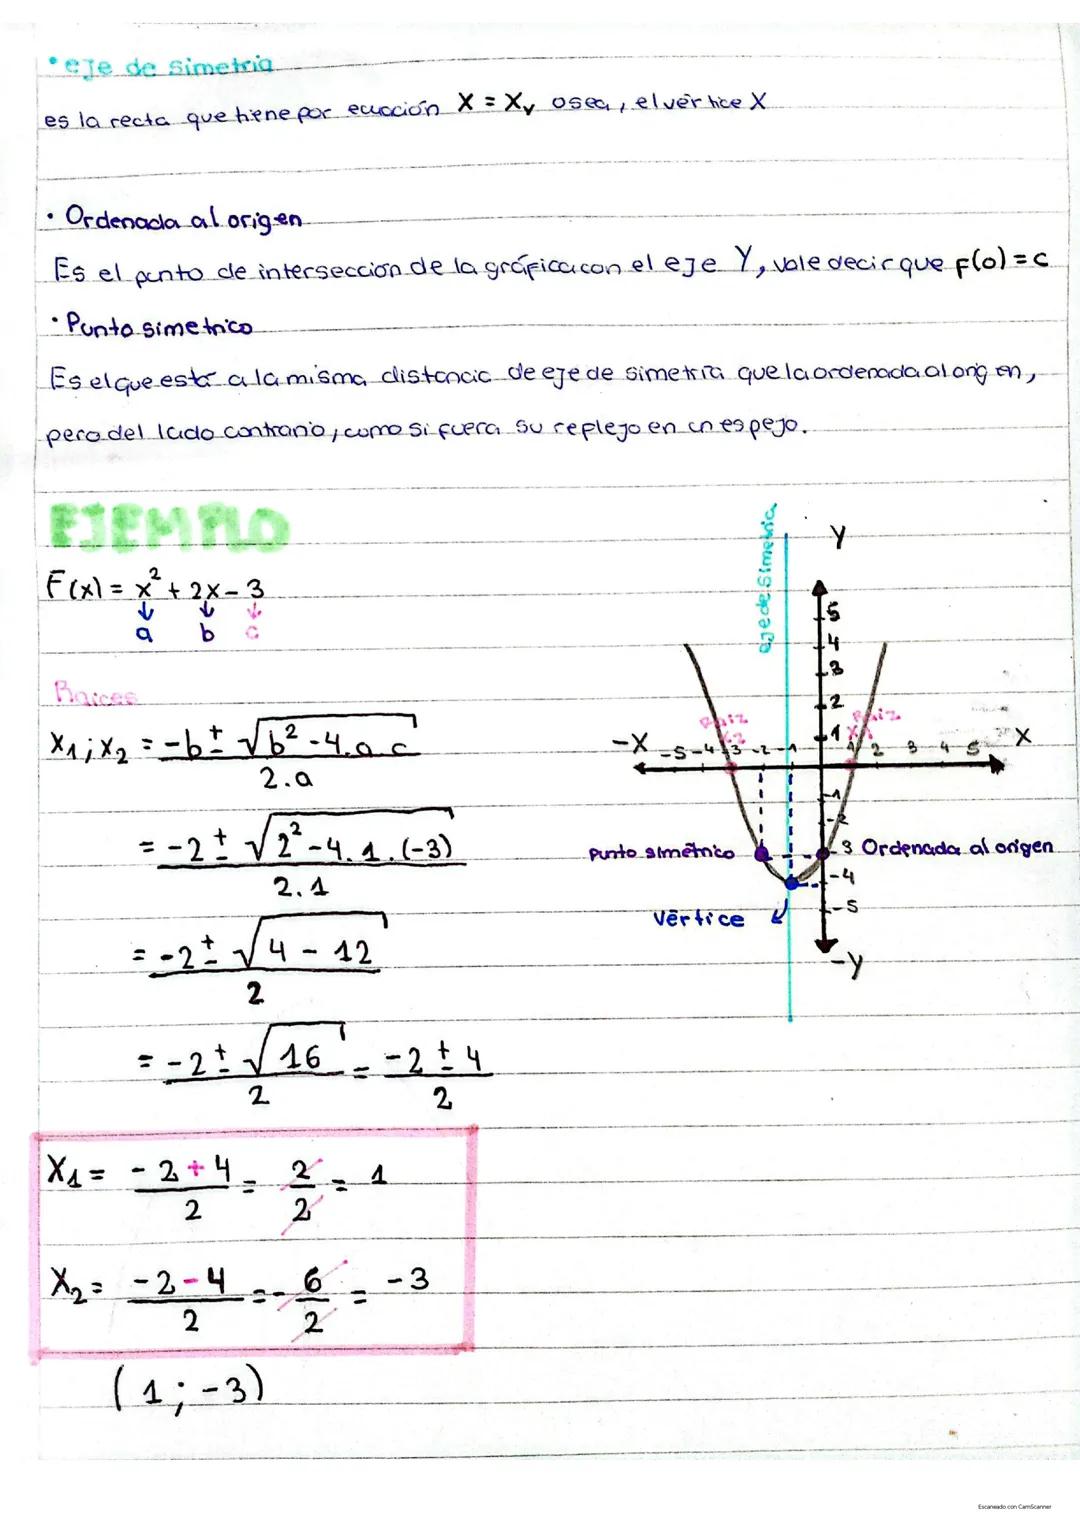 • eje de simetria
es la recta que tiene por ecuación X = Xv osea, el vértice X
• Ordenada al origen
Es el punto de intersección de la gráfica con el eje Y, vale decir que F(0) = c
• Punto simetrico
Es el que está a la misma distancia de eje de simetria que la ordenada al origen,
pero del lado contrario, como si fuera su reflejo en un espejo.
EJEMPLO
F(x) = x² + 2x - 3
a b c
Raices
X₁ ; X₂ = -b ± √b² - 4.a.c
2.a
= -2 ± √2² - 4.1.(-3)
2.1
= -2 ± √4 - 12
2
= -2 ± √16 = -2 ± 4
2 2
X₁ = -2+4 = 2 = 1
2 2
X₂ = -2-4 = -6 = -3
2 2
(1 ; -3)
eje de simetria
Y
5
4
3
2
1
Raiz X2
Raiz X1
-X -5 -4 -3 -2 -1 1 2 3 4 5 X
-1
-2
Punto simétrico
-3 Ordenada al origen
-4
Vértice
-5
-Y
Escaneado con CamScanner